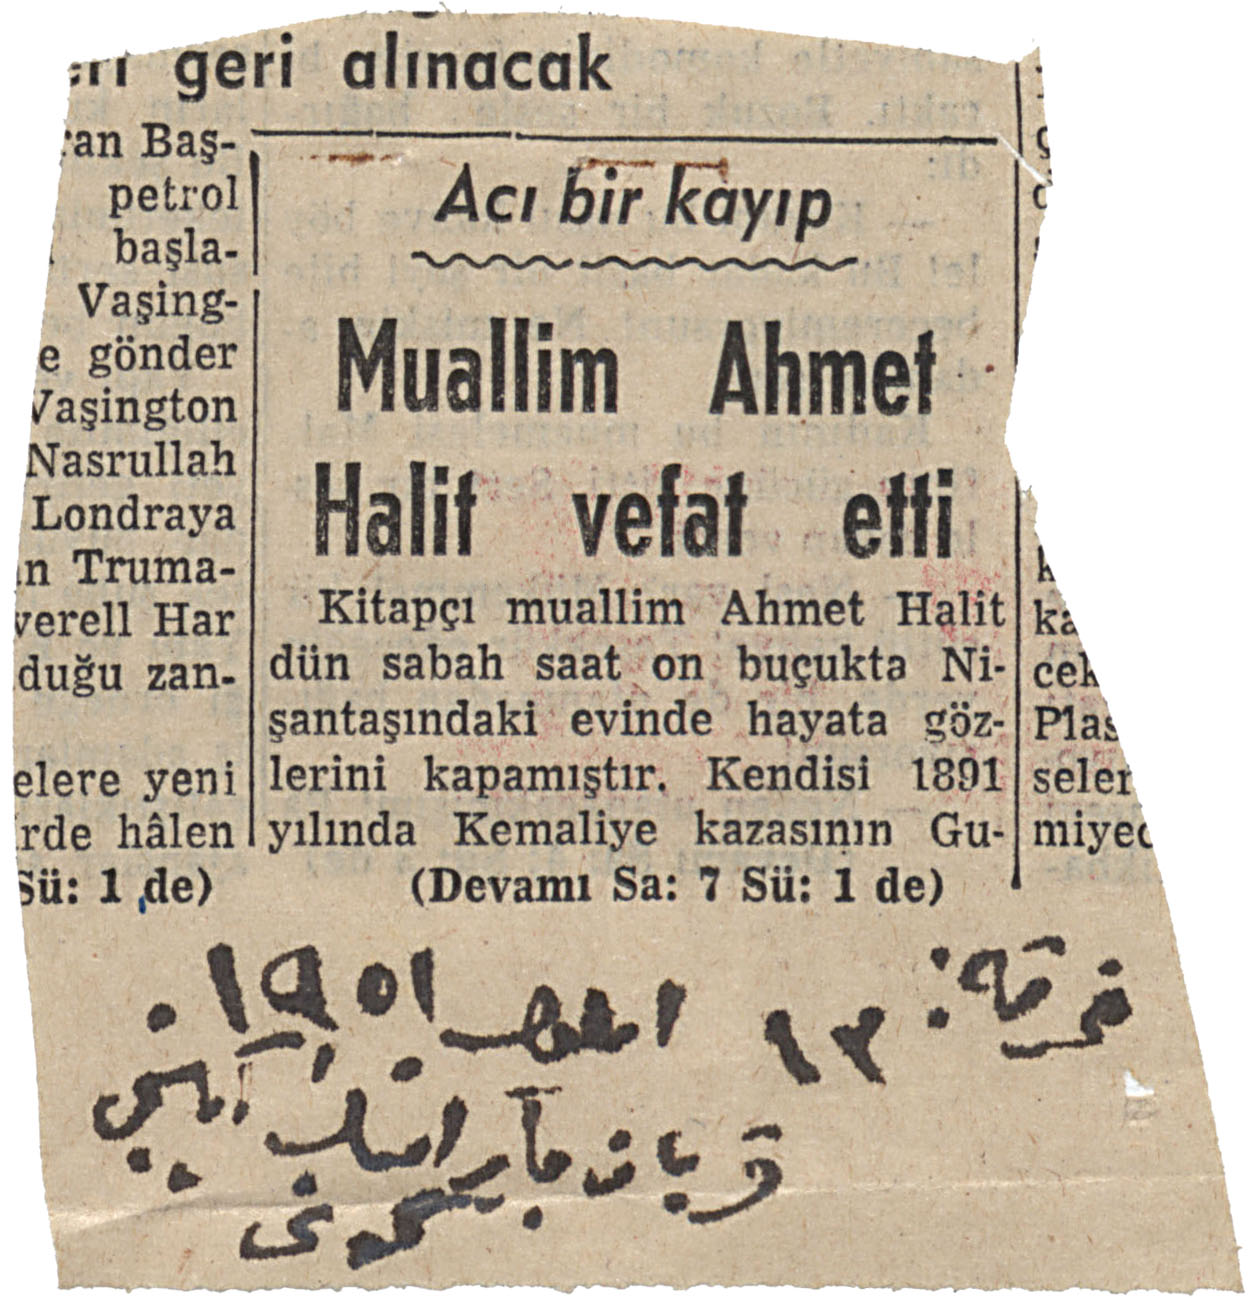 geri alınacak
Baş-
petrol
başla-
Vaşing-
e gönder
Vaşington
Nasrullah
Londraya
n Truma-
verell Har
duğu zan-
elere yeni
rde hâlen
Sü: 1 de)
Acı bir kayıp
Muallim Ahmet
Halit vefat etti
Kitapçı muallim Ahmet Halit
dün sabah saat on buçukta Ni-
şantaşındaki evinde hayata göz-
lerini kapamıştır. Kendisi 1891
yılında Kemaliye kazasının Gu-
(Devamı Sa: 7 Sü: 1 de)
cek
Plas
seler
miyec
١٣ ايلول ١٩٥١.
قربان بايرامنك
كونى